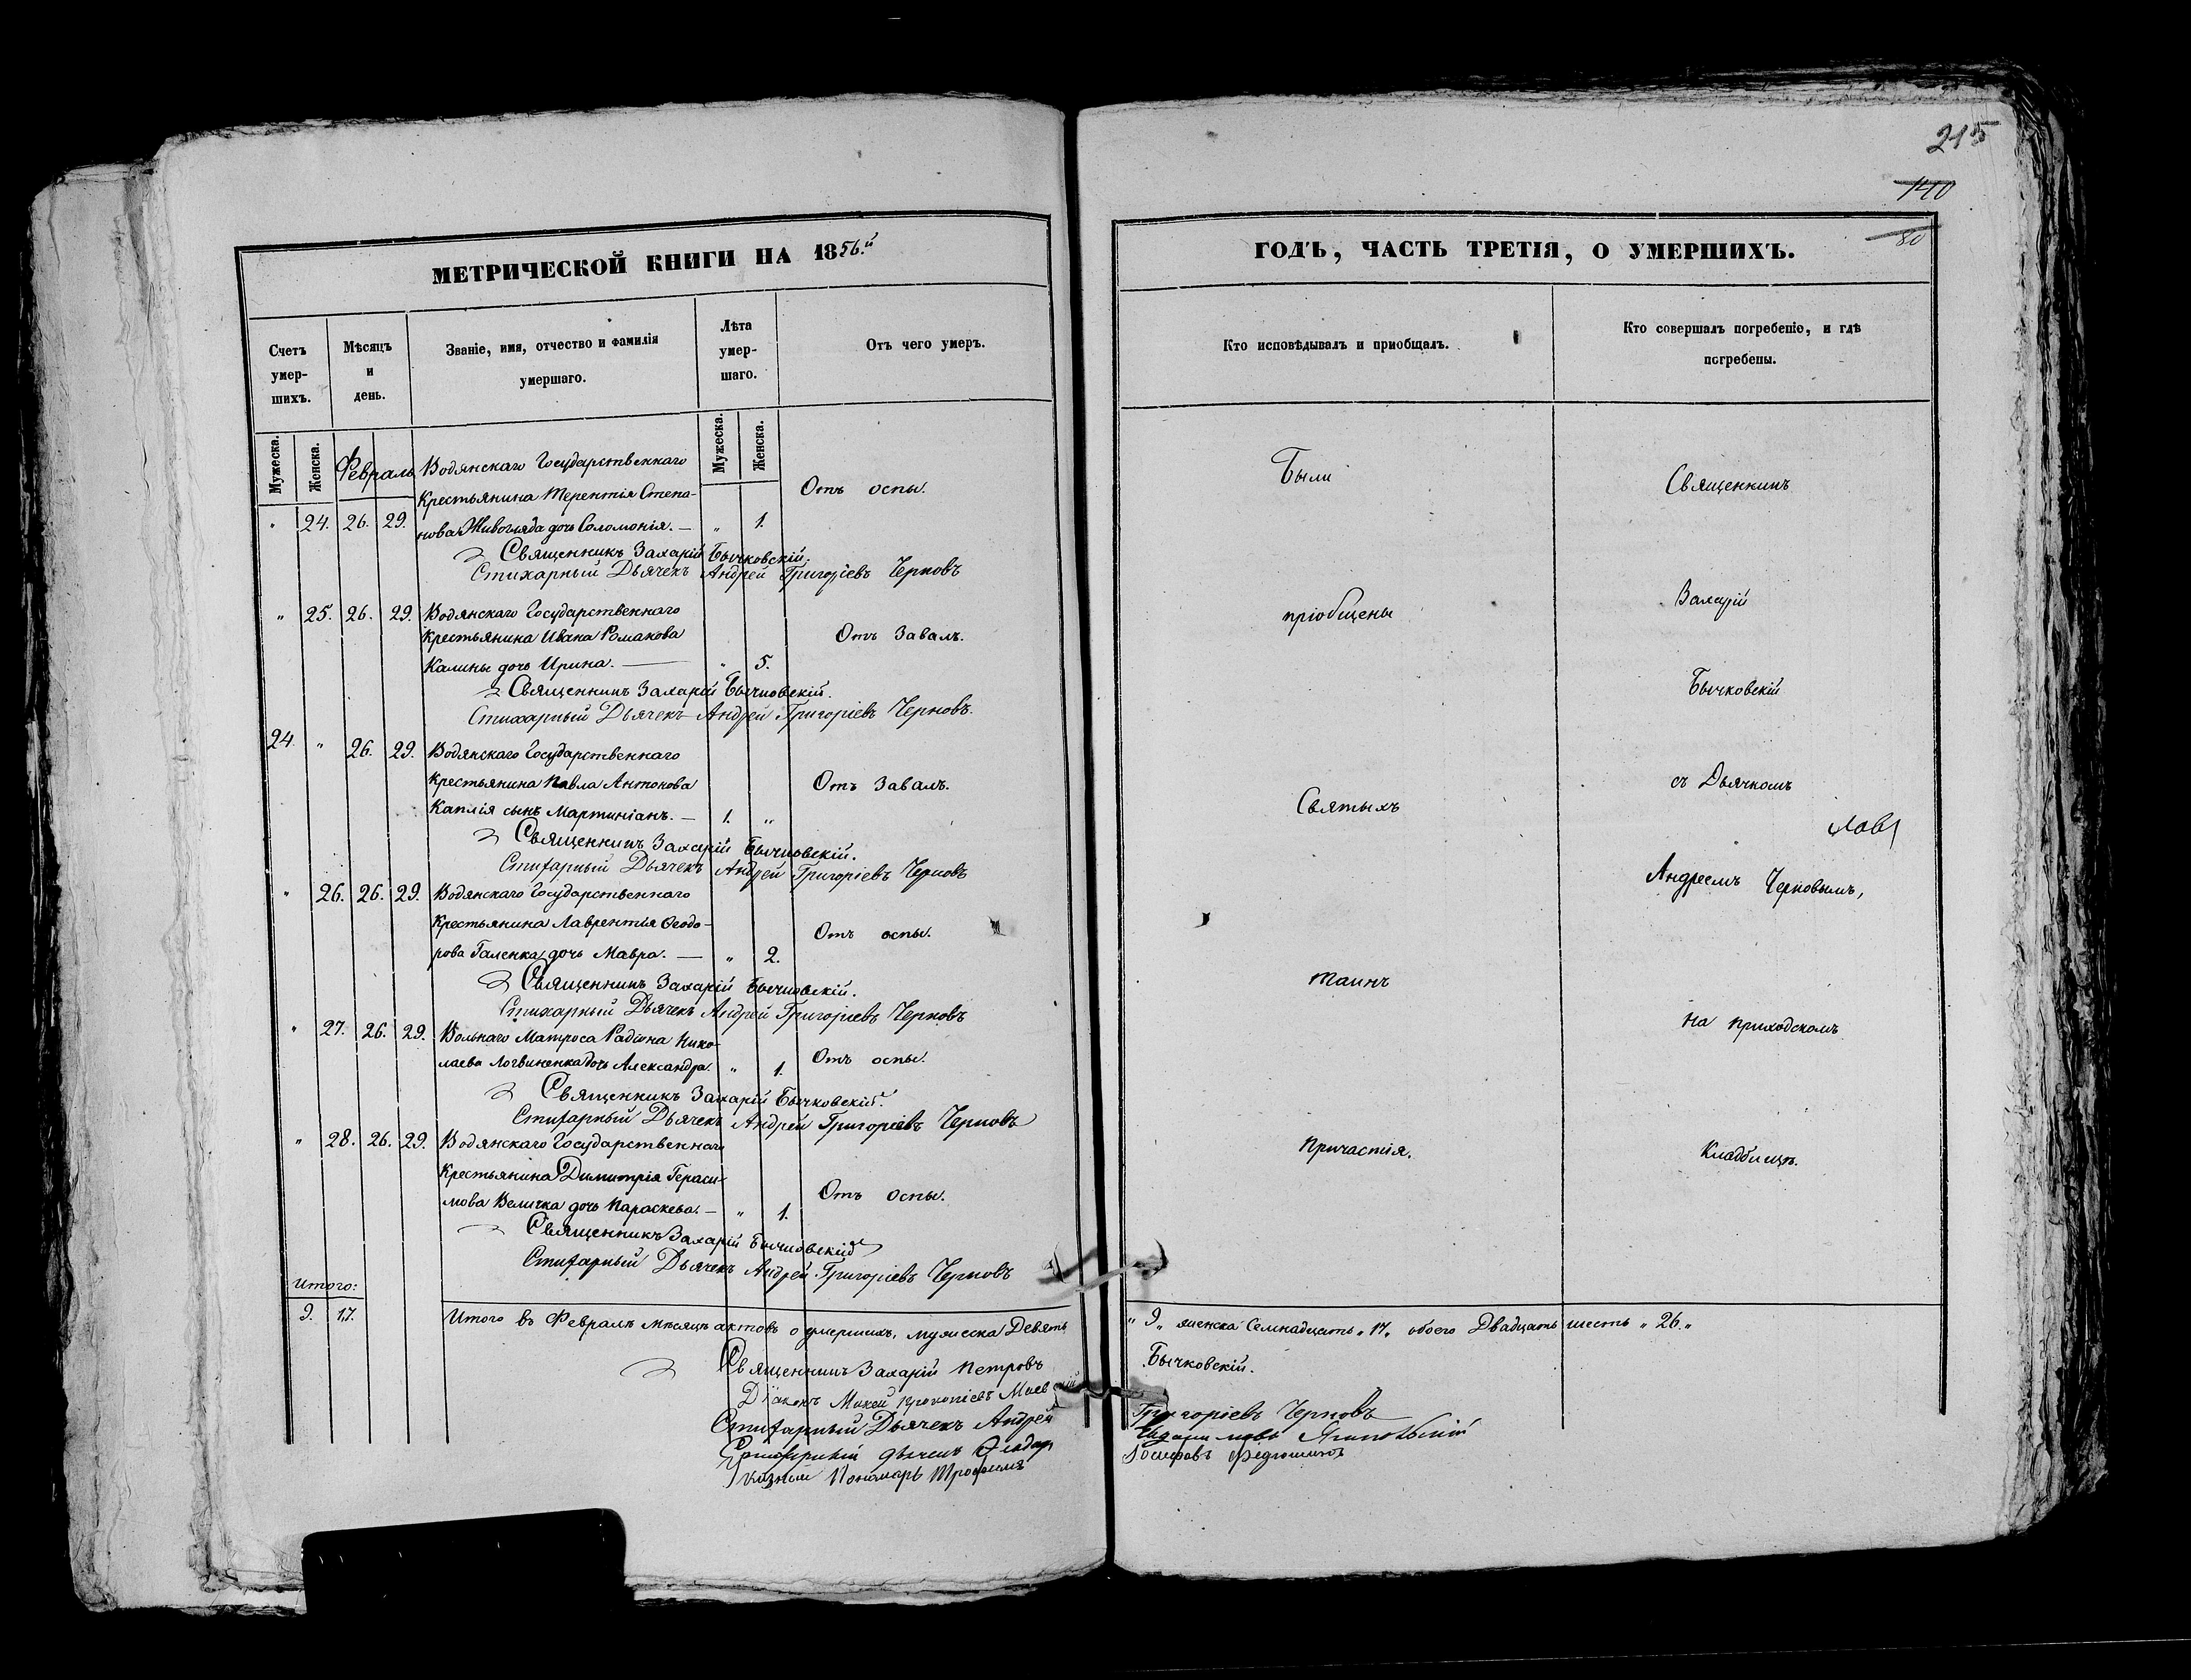 215
140
80
МЕТРИЧЕСКОЙ КНИГИ НА 1856.й
Счетъ умер-шихъ.
Мѣсяцъ и день.
Званіе, имя, отчество и фамилія умершаго.
Лѣта умер-шаго.
Отъ чего умеръ.
Мужеска.
Женска.
Мужеска.
Женска.
Февраль
Водянскаго Государственнаго
Крестьянина Терентія Степа-
" 24. 26. 29. нова Живогляда дочь Соломонія. — " 1. Отъ оспы.
Священникъ Захарій Бычковскій.
Стихарный Дьячекъ Андрей Григоріевъ Черновъ
" 25. 26. 29. Водянскаго Государственнаго
Крестьянина Ивана Романова Отъ Завалъ.
Калины дочь Ирина. — " 5.
Священникъ Захарій Бычковскій.
Стихарный Дьячекъ Андрей Григоріевъ Черновъ.
24. " 26. 29. Водянскаго Государственнаго
Крестьянина Павла Антонова Отъ Завалъ.
Каплія сынъ Мартиніанъ. — 1. "
Священникъ Захарій Бычковскій.
Стихарный Дьячекъ Андрей Григоріевъ Черновъ
" 26. 26. 29. Водянскаго Государственнаго
Крестьянина Лаврентія Ѳеодо- Отъ оспы.
рова Галенка дочь Мавра. — " 2.
Священникъ Захарій Бычковскій.
Стихарный Дьячекъ Андрей Григоріевъ Черновъ
" 27. 26. 29. Вольнаго Матроса Радіона Нико-
лаева Логвиненка дочь Александра. " 1. Отъ оспы.
Священникъ Захарій Бычковскій.
Стихарный Дьячекъ Андрей Григоріевъ Черновъ
" 28. 26. 29. Водянскаго Государственнаго
Крестьянина Димитрія Гераси-
мова Величка дочь Параскева. — " 1. Отъ оспы.
Священникъ Захарій Бычковскій
Стихарный Дьячекъ Андрей Григоріевъ Черновъ
Итого:
9. 17.
Итого въ Февралѣ мѣсяцѣ актовъ о умершихъ, мужеска Девять
Священникъ Захарій Петровъ
Діаконъ Мокей Прокопіевъ
Стихарный Дьячекъ Андрей
Стихарный дьячекъ
Указный Пономарь Трофимъ
ГОДЪ, ЧАСТЬ ТРЕТІЯ, О УМЕРШИХЪ.
Кто исповѣдывалъ и пріобщалъ.
Кто совершалъ погребеніе, и гдѣ погребены.
Были
пріобщены
Святыхъ
таинъ
Причастія.
Священникъ
Захарій
Бычковскій
съ Дьячкомъ
Андреемъ Черновымъ,
на приходскомъ
Кладбищѣ.
" 9 " женска Семнадцать " 17 " обоего Двадцать шесть " 26. "
Бычковскій.
Григоріевъ Черновъ
Іосифовъ